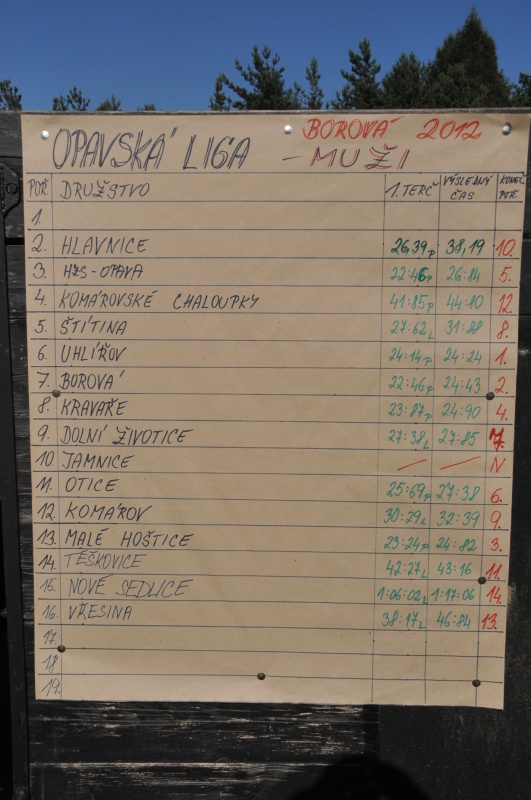 OPAVSKÁ LIGA – MUŽI BOROVÁ 2012
POŘ. DRUŽSTVO 1. TERČ VÝSLEDNÝ ČAS KONEČ. POŘ.
1.
2. HLAVNICE 26,39 P 38,19 10.
3. HZS-OPAVA 22:46 P 26:84 5.
4. KOMÁROVSKÉ CHALOUPKY 41:85 P 44:80 12.
5. ŠTÍTINA 27:62 L 31:28 8.
6. UHLÍŘOV 24:14 P 24:24 1.
7. BOROVÁ 22:46 P 24:43 2.
8. KRAVAŘE 23:87 P 24:90 4.
9. DOLNÍ ŽIVOTICE 27:38 L 27:85 7.
10. JAMNICE / / N
11. OTICE 25:69 P 27:38 6.
12. KOMÁROV 30:29 L 32:39 9.
13. MALÉ HOŠTICE 23:24 P 24:82 3.
14. TĚŠKOVICE 42:27 L 43:16 11.
15. NOVÉ SEDLICE 1:06:02 L 1:17:06 14.
16. VŘESINA 38:17 L 46:84 13.
17.
18.
19.